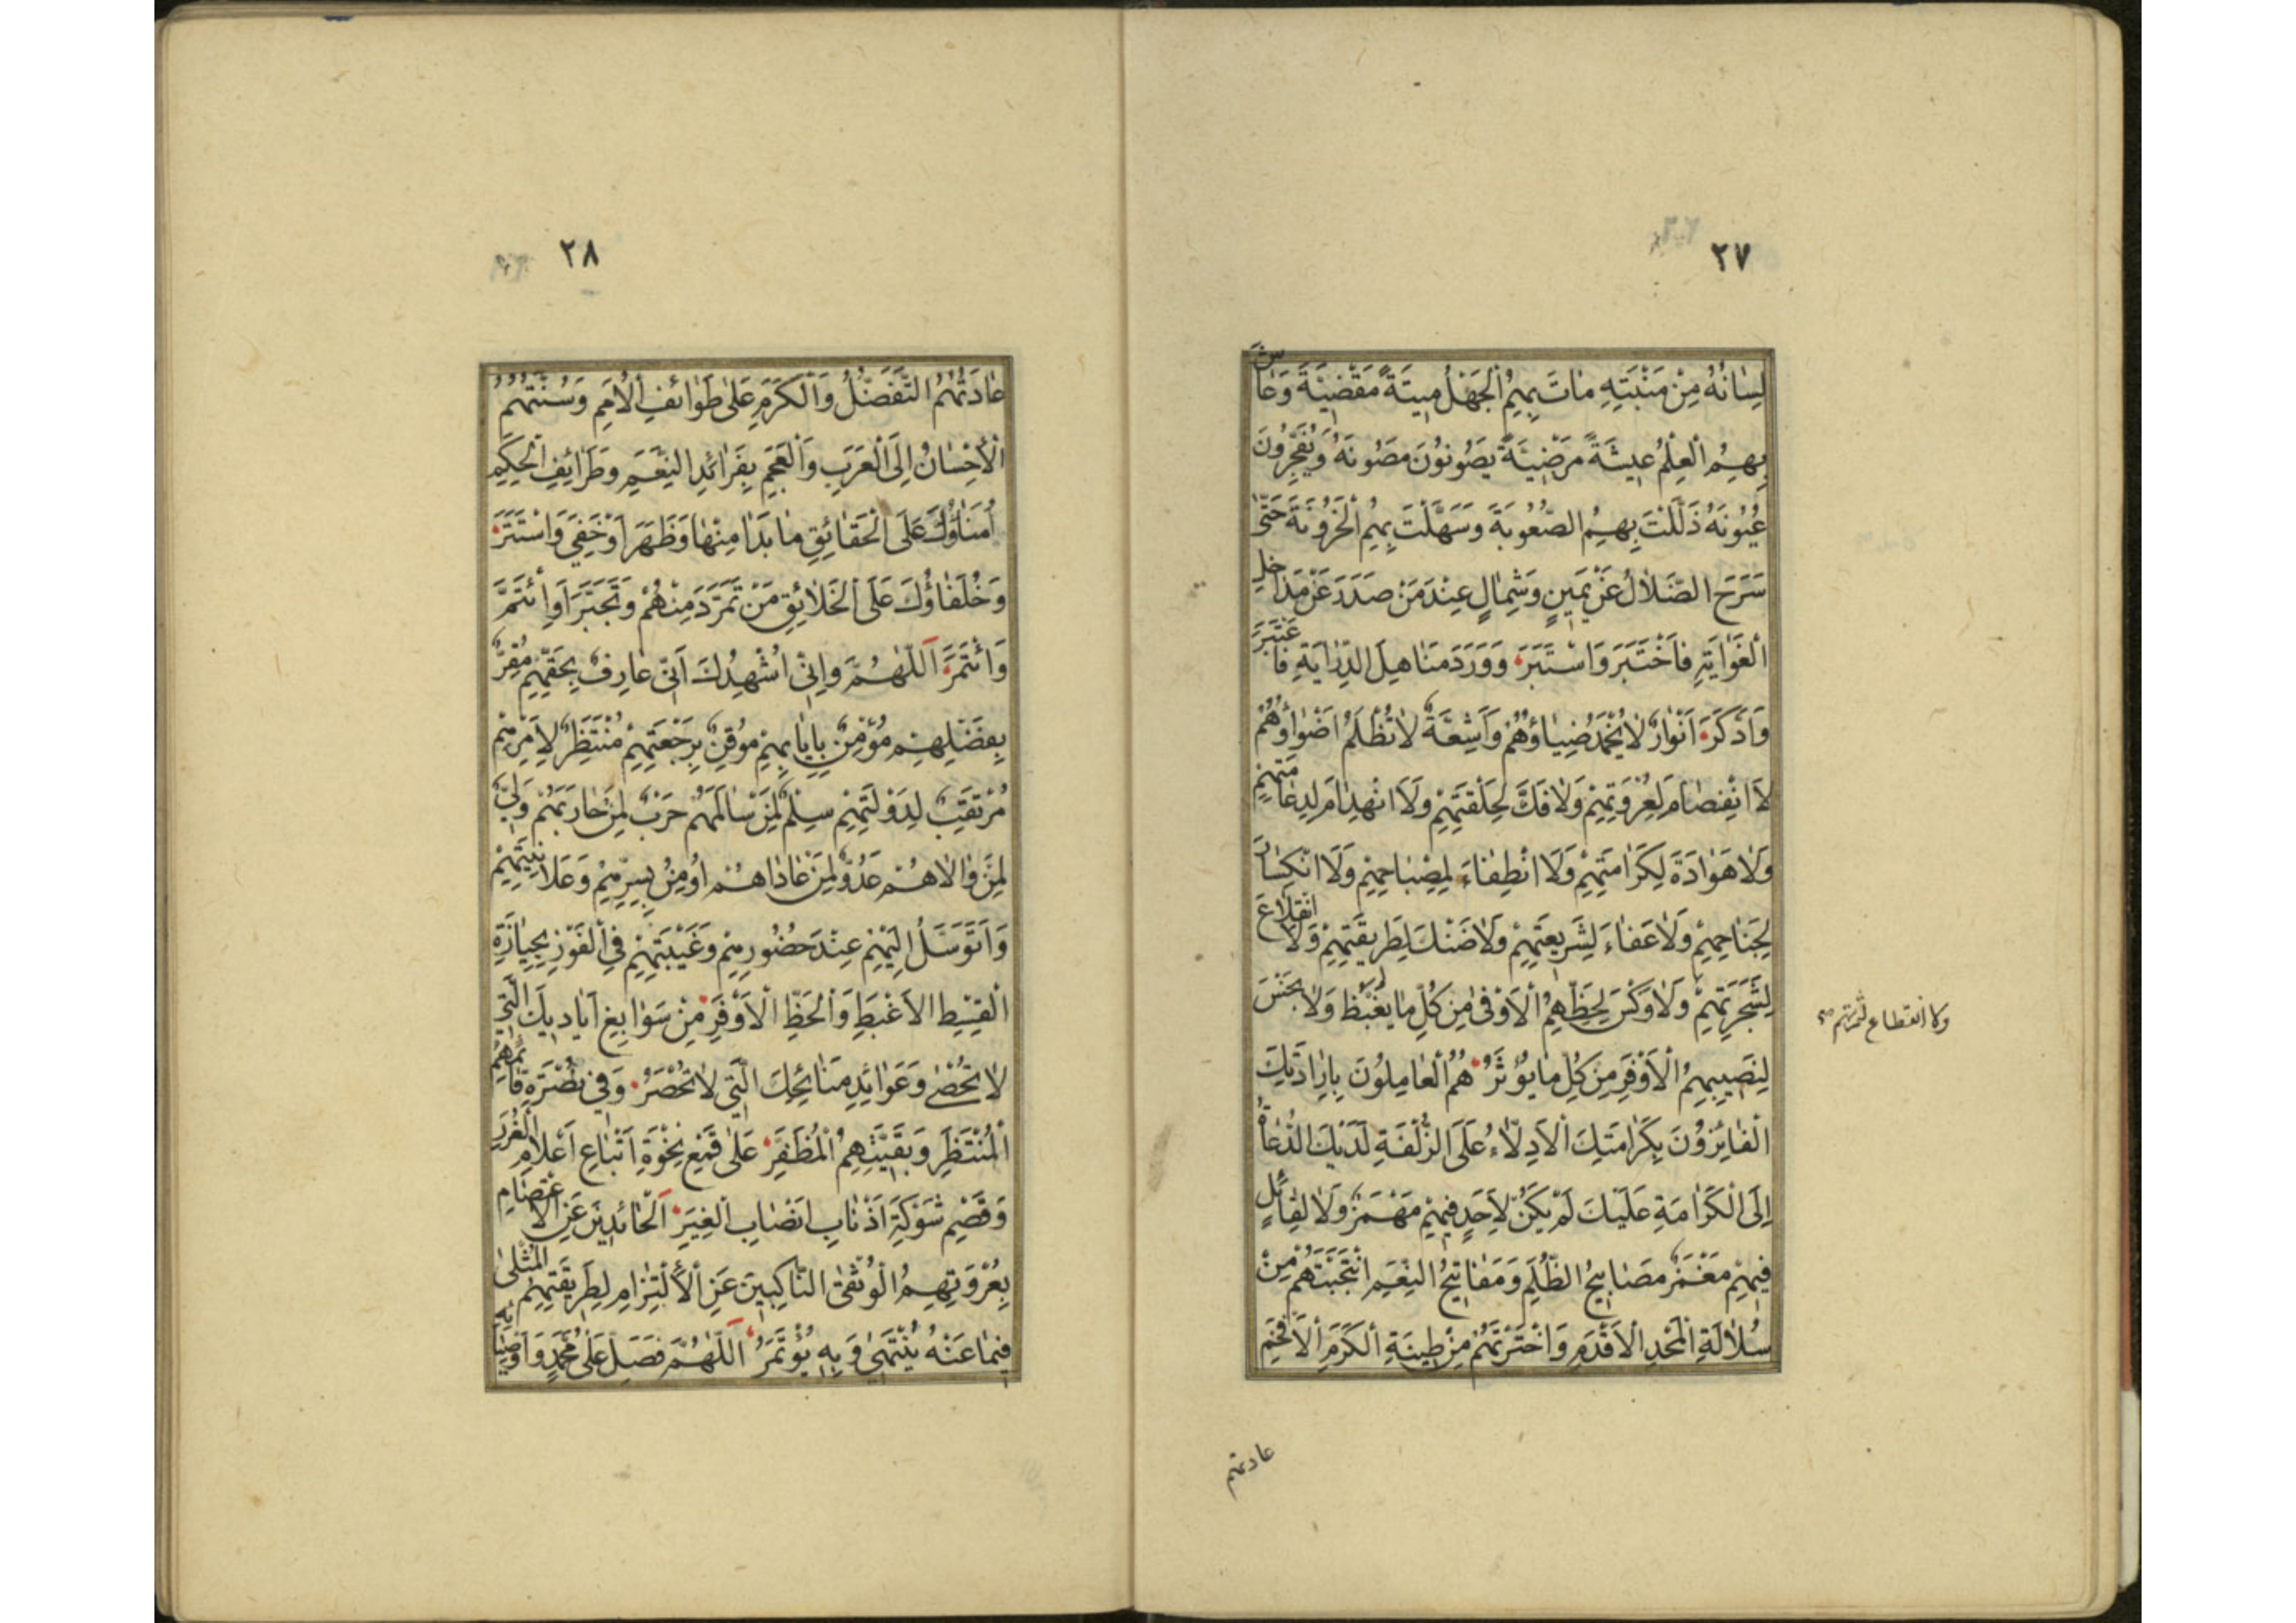 ٢٧
لِسٰانُهُ مِنْ مَنْبَتِهِ مٰاتَ بِهِمُ الْجَهْلُ مِيتَةً مَقْضِيَّةً وَعٰاشَ
بِهِمُ الْعِلْمُ عِيشَةً مَرْضِيَّةً يَصُونُونَ مَصُونَهُ وَيُفَجِّرُونَ
عُيُونَهُ ذَلَّلْتَ بِهِمُ الصُّعُوبَةَ وَسَهَّلْتَ بِهِمُ الْحُزُونَةَ حَتّىٰ
سَرَحَ الضَّلٰالُ عَنْ يَمِينٍ وَشِمٰالٍ عِنْدَ مَنْ صَدَرَ عَنْ مَدٰاخِلِ
الْغَوٰايَةِ فَاخْتَبَرَ وَاسْتَبَرَ وَوَرَدَ مَنٰاهِلَ الدِّرٰايَةِ فَاعْتَبَرَ
وَادَّكَرَ اَنْوٰارٌ لٰا يُخْمَدُ ضِيٰاؤُهُمْ وَاَشِعَّةٌ لٰا تُظْلَمُ اَضْوٰاؤُهُمْ
لَا انْفِصٰامَ لِعُرْوَتِهِمْ وَلٰا فَكَّ لِحَلْقَتِهِمْ وَلَا انْهِدٰامَ لِدِعٰامَتِهِمْ
وَلٰا هَوٰادَةَ لِكَرٰامَتِهِمْ وَلَا انْطِفٰاءَ لِمِصْبٰاحِهِمْ وَلَا انْكِسٰارَ
لِجَنٰاحِهِمْ وَلٰا عَفٰاءَ لِشَرِيعَتِهِمْ وَلٰا ضَنْكَ لِطَرِيقَتِهِمْ وَلَا انْقِلٰاعَ
لِشَجَرَتِهِمْ وَلٰا وَكْسَ لِحَظِّهِمُ الْاَوْفىٰ مِنْ كُلِّ مٰا يُغْبَظُ وَلٰا بَخْسَ
ولا انقطاع لثمرتهم
لِنَصِيبِهِمُ الْاَوْفَرِ مِنْ كُلِّ مٰا يُؤْثَرُ هُمُ الْعٰامِلُونَ بِاِرٰادَتِكَ
الْفٰائِزُونَ بِكَرٰامَتِكَ الْاَدِلّٰاءُ عَلَى الزُّلْفَةِ لَدَيْكَ الدُّعٰاةُ
اِلَى الْكَرٰامَةِ عَلَيْكَ لَمْ يَكُنْ لِاَحَدٍ فِيهِمْ مَهْمَزٌ وَلٰا لِقٰائِلٍ
فِيهِمْ مَغْمَزٌ مَصٰابِيحُ الظُّلَمِ وَمَفٰاتِيحُ النِّعَمِ انْتَجَبْتَهُمْ مِنْ
سُلٰالَةِ الْمَجْدِ الْاَقْدَمِ وَاخْتَرْتَهُمْ مِنْ طِينَةِ الْكَرَمِ الْاَفْخَمِ
عادتهم
٢٨
عٰادَتُهُمُ التَّفَضُّلُ وَالْكَرَمِ عَلىٰ طَوٰائِفِ الْاُمَمِ وَسُنَّتُهُمُ
الْاِحْسٰانُ اِلَى الْعَرَبِ وَالْعَجَمِ بِفَرٰائِدِ النِّعَمِ وَطَرٰائِفِ الْحِكَمِ
اُمَنٰاؤُكَ عَلَى الْحَقٰائِقِ مٰا بَدٰا مِنْهٰا وَظَهَرَ اَوْ خَفِيَ وَاسْتَتَرَ
وَخُلَفٰاؤُكَ عَلَى الْخَلٰائِقِ مَنْ تَمَرَّدَ مِنْهُمْ وَتَجَبَّرَ اَوِ ائْتَمَّ
وَائْتَمَرَ اَللّٰهُمَّ وَاِنّي اُشْهِدُكَ اَنّي عٰارِفٌ بِحَقِّهِمْ مُقِرٌّ
بِفَضْلِهِمْ مُؤْمِنٌ بِاِيٰابِهِمْ مُوقِنٌ بِرَجْعَتِهِمْ مُنْتَظِرٌ لِاَمْرِهِمْ
مُرْتَقِبٌ لِدَوْلَتِهِمْ سِلْمٌ لِمَنْ سٰالَمَهُمْ حَرْبٌ لِمَنْ حٰارَبَهُمْ وَلِيٌّ
لِمَنْ وٰالٰاهُمْ عَدُوٌّ لِمَنْ عٰادٰاهُمْ اُومِنُ بِسِرِّهِمْ وَعَلٰانِيَتِهِمْ
وَاَتَوَسَّلُ اِلَيْهِمْ عِنْدَ حُضُورِهِمْ وَغَيْبَتِهِمْ فِي الْفَوْزِ بِحِيٰازَةِ
الْقِسْطِ الْاَغْبَطِ وَالْحَظِّ الْاَوْفَرِ مِنْ سَوٰابِغِ اَيٰادِيكَ الَّتِي
لٰا تُحْصىٰ وَعَوٰائِدِ مَنٰائِحِكَ الَّتِي لٰا تُحْصَرُ وَفِي نُصْرَةِ قٰائِمِهِمُ
الْمُنْتَظَرِ وَبَقِيَّتِهِمُ الْمُظَفَّرِ عَلىٰ قَمْعِ نِخْوَةِ اَتْبٰاعِ اَعْلٰامِ الْغُرَرِ
وَقَصْمِ شَوْكَةِ اَذْنٰابِ اَنْصٰابِ الْغِيَرِ اَلْحٰائِدِينَ عَنِ الْاِعْتِصٰامِ
بِعُرْوَتِهِمُ الْوُثْقىٰ النّٰاكِبِينَ عَنِ الْاِلْتِزٰامِ لِطَرِيقَتِهِمُ الْمُثْلىٰ
فِيمٰا عَنْهُ يُنْتَهىٰ وَبِهِ يُؤْتَمَرُ اَللّٰهُمَّ فَصَلِّ عَلىٰ مُحَمَّدٍ وَاَوْصِيٰائِهِ